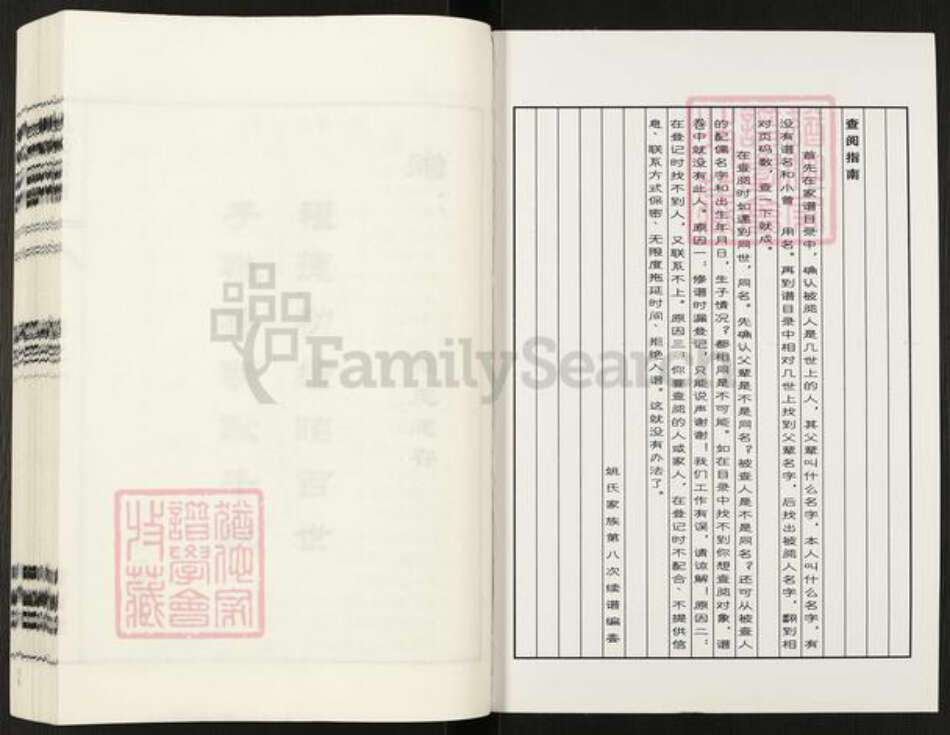 查阅指南
首先在家谱目录中，确认被阅人是几世上的人，其父辈叫什么名字，本人叫什么名字，有
没有谱名和小曾　用名。再到谱目录中相对几世上找到父辈名字，后找出被阅人名字，翻到相
对页码数，查一下就成。
在查阅时如遇到同世，同名。先确认父辈是不是同名？被查人是不是同名？还可从被查人
的配偶名字和出生年月日，生子情况？都相同是不可能。如在目录中找不到你想查阅对象，谱
卷中就没有此人。原因一：修谱时漏登记，只能说声谢谢！我们工作有误，请谅解！原因二：
在登记时找不到人，又联系不上。原因三：你要查阅的人或家人，在登记时不配合、不提供信
息、联系方式保密、无限度拖延时间、拒绝入谱。这就没有办法了。
姚氏家族第八次续谱编委
FamilySearch
猶他家
譜學會
收藏